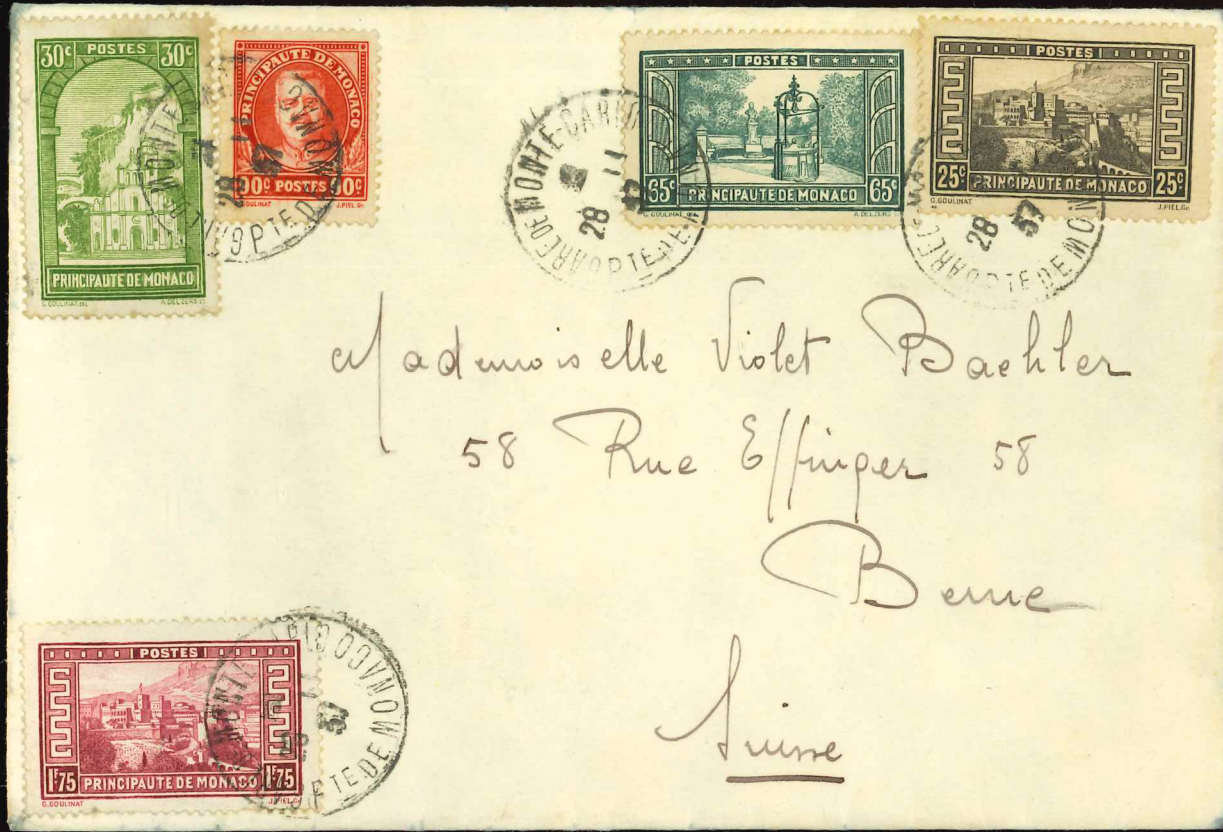 30c POSTES 30c
PRINCIPAUTE DE MONACO
G. GOULINAT. DEL. A. DELZERS
PRINCIPAUTE DE MONACO
90c POSTES 90c
G. GOULINAT J. PIEL. Gr.
POSTES
65c PRINCIPAUTE DE MONACO 65c
G. GOULINAT A. DELZERS
POSTES
25c PRINCIPAUTE DE MONACO 25c
G. GOULINAT J. PIEL. Gr.
GARE DE MONTE-CARLO PTE DE MONACO
28 11 37
28 37
Mademoiselle Violet Baehler
58 Rue Effinger 58
Berne
Suisse
POSTES
1F75 PRINCIPAUTE DE MONACO 1F75
G. GOULINAT J. PIEL. Gr.
PTE DE MONACO
28 37